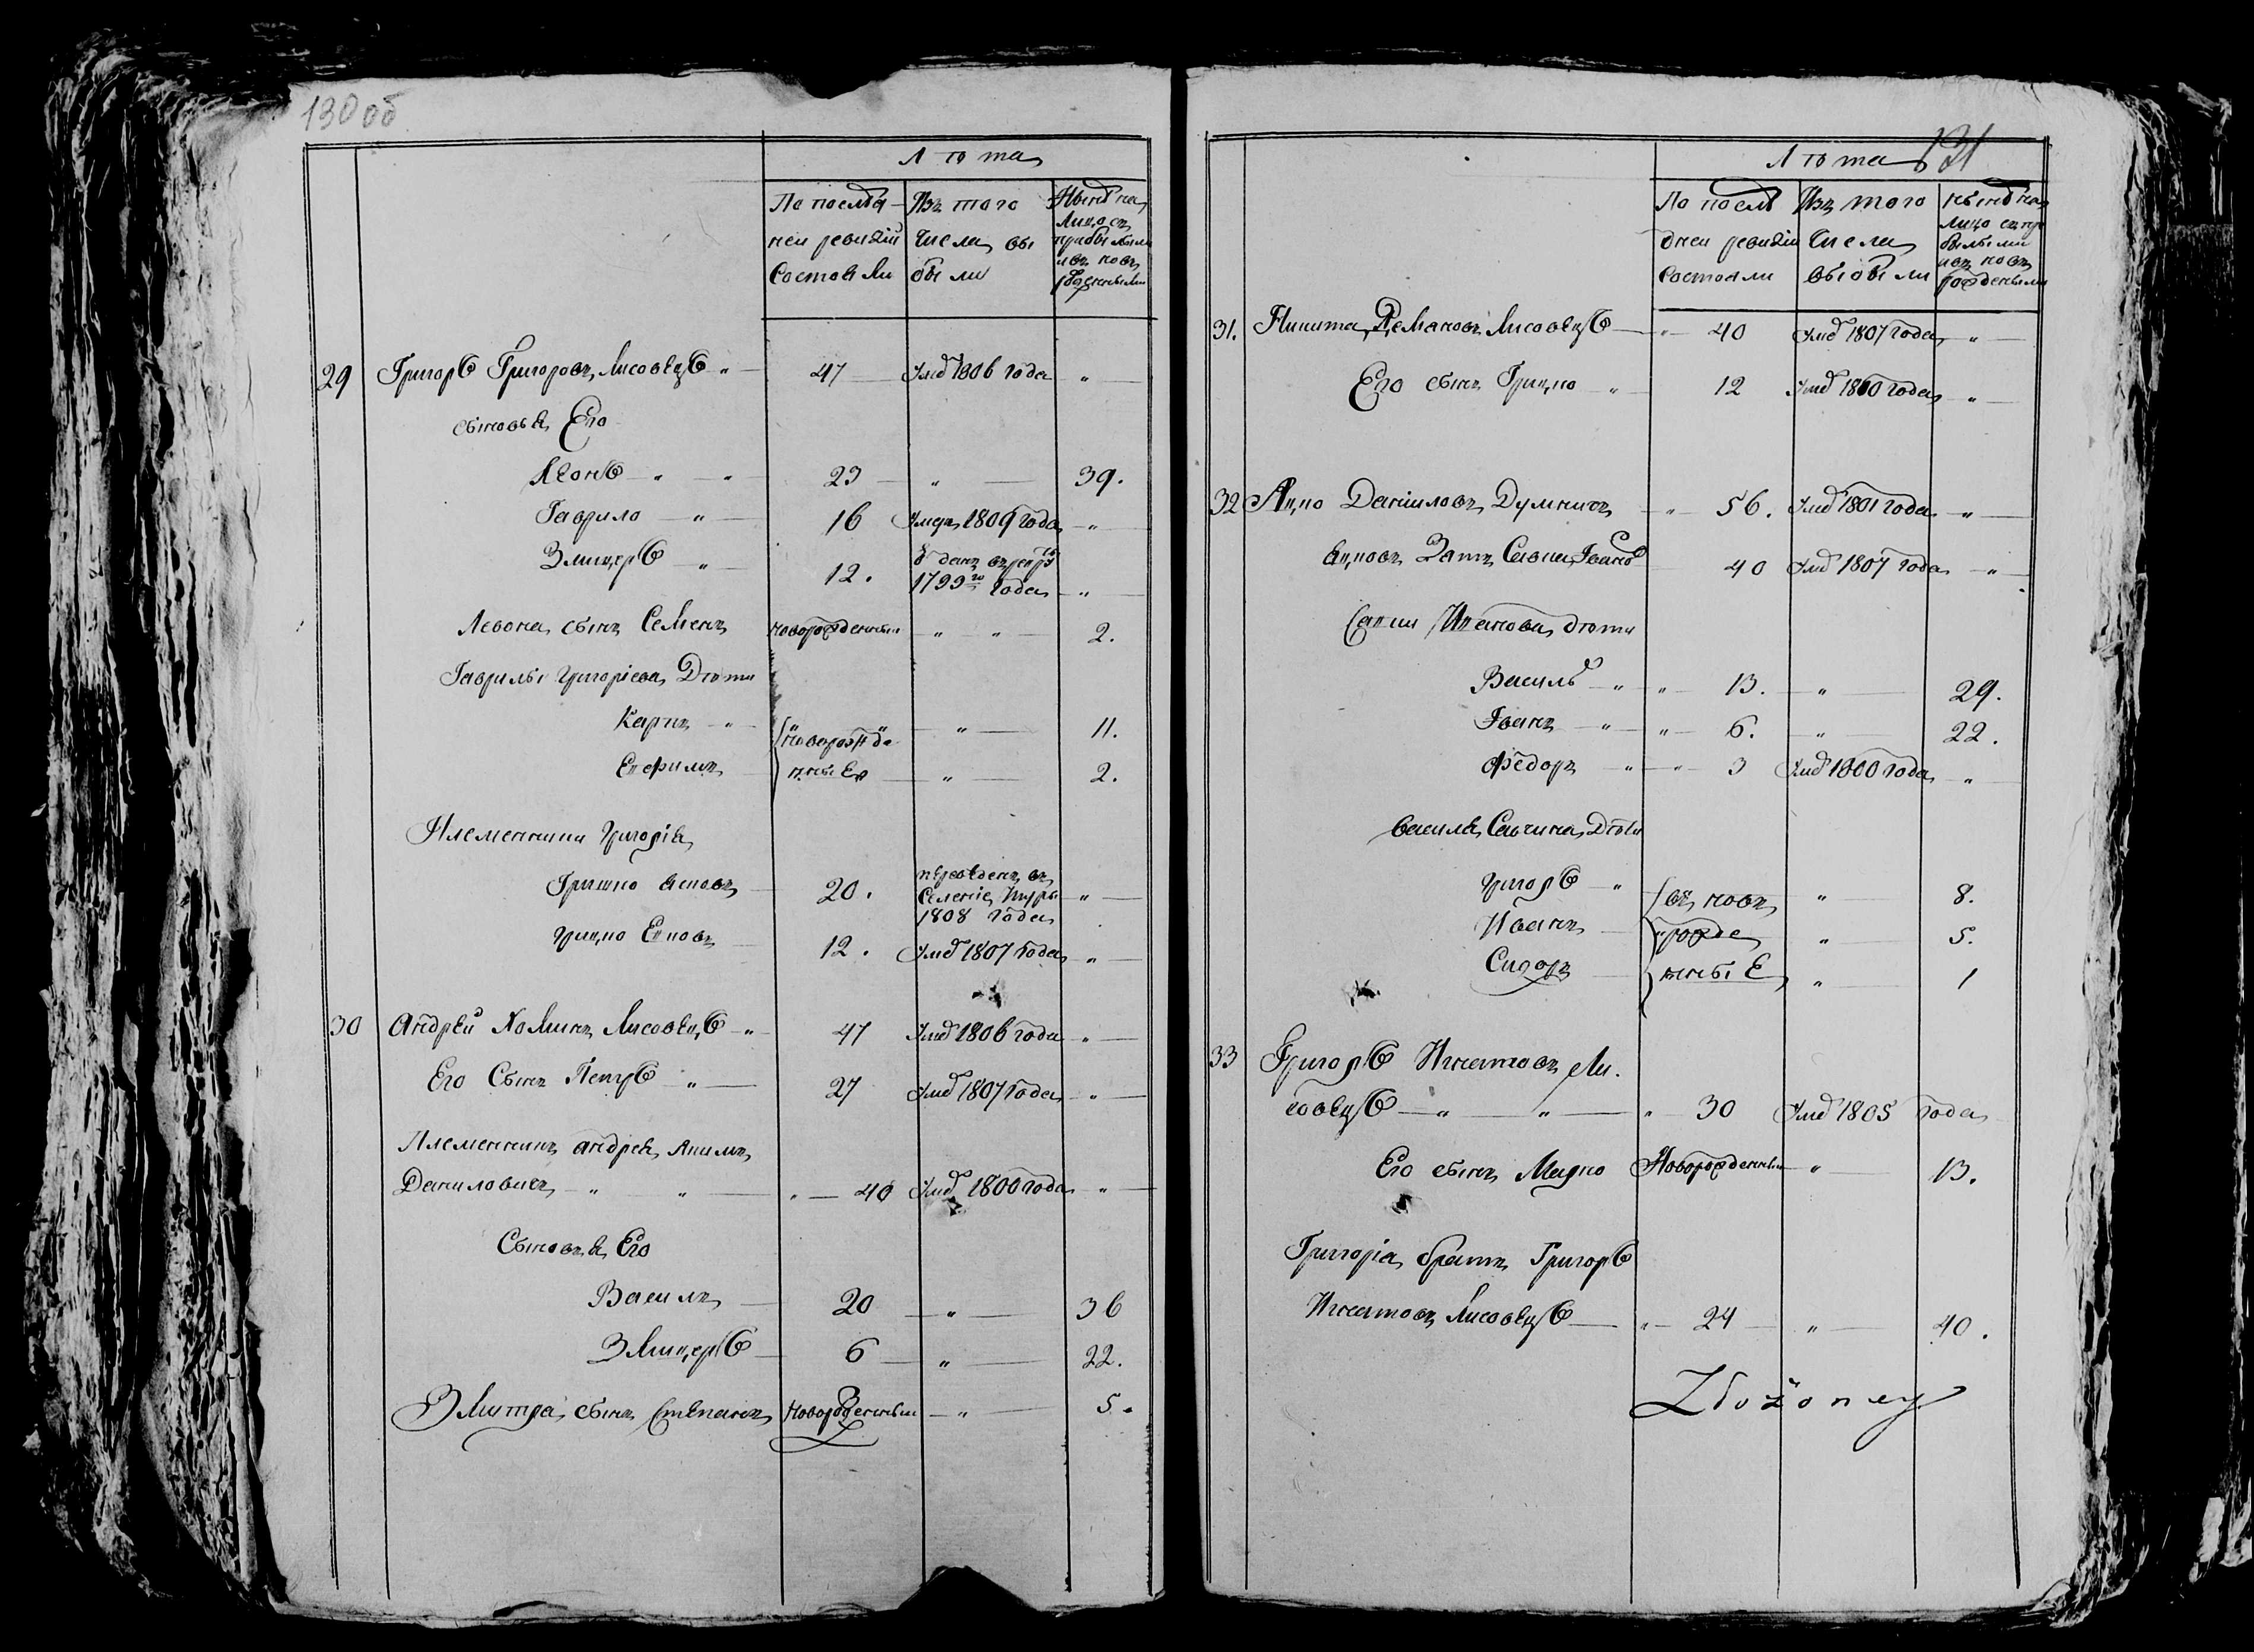 130 об
Лѣта
По послѣд
ней ревизіи
состояли
Изъ того
числа вы
были
Нынѣ на
лицо съ
прибылыми
и въ новъ
рожденными
29 Григорѣ Григоровъ Лисовецѣ „ 47 Умѣ 1806 года „
сыновья Его
Леонѣ „ „ 23 „ 39.
Гаврило „ 16 Умеръ 1809 года „
Змитерѣ „ 12. Ѿданъ в рекруты 1799го года „
Левона сынъ Семенъ новорожденный „ „ 2.
Гаврилы Григоріева Дѣти
Карпъ „ новорожде „ 11.
Ефимъ нные „ 2.
Племенники Григорія
Гришко 20. переведенъ въ
селеніе
1808 года „
Грицко 12. Умѣ 1807 года „
30 Андрей Хоминъ Лисовецѣ „ 47 Умѣ 1806 года „
Его Сынъ Петрѣ „ 27 Умѣ 1807 года „
Племенникъ андрея Якимъ
Даниловичъ „ „ „ 40 Умѣ 1800 года „
Сыновья Его
Василь 20 „ 36
Змитерѣ 6 „ 22.
Змитра сынъ Степанъ Новорожденный „ 5.
131
Лѣта
По послѣ
дней ревизіи
состояли
Изъ того
числа
выбыли
нынѣ на
лицо съ при
былыми
и въ новъ
рожденными
31. Никита Демановъ Лисовецѣ „ 40 Умѣ 1807 года „
Его сынъ Грицко „ 12 Умѣ 1800 года „
32 Яцко Даниловъ Думничъ „ 56. Умѣ 1801 года „
Яцковъ Зять Савка Іванов 40 Умѣ 1807 года „
Савки Иванова дѣти
Василь „ „ 13. „ 29.
Іванъ „ „ 6. „ 22.
Федоръ „ „ 3 Умѣ 1800 года „
василя Савчина Дѣти
Григорѣ „ въ новъ „ 8.
Иванъ рожде „ 5.
Сидоръ нные „ 1
33 Григорѣ Игнатовъ Ли
совецѣ „ „ „ 30 Умѣ 1805 года
Его сынъ Марко Новорожденный „ 13.
Григорія братъ Григорѣ
Игнатовъ Лисовецѣ „ 24 „ 40.
Zdożoney